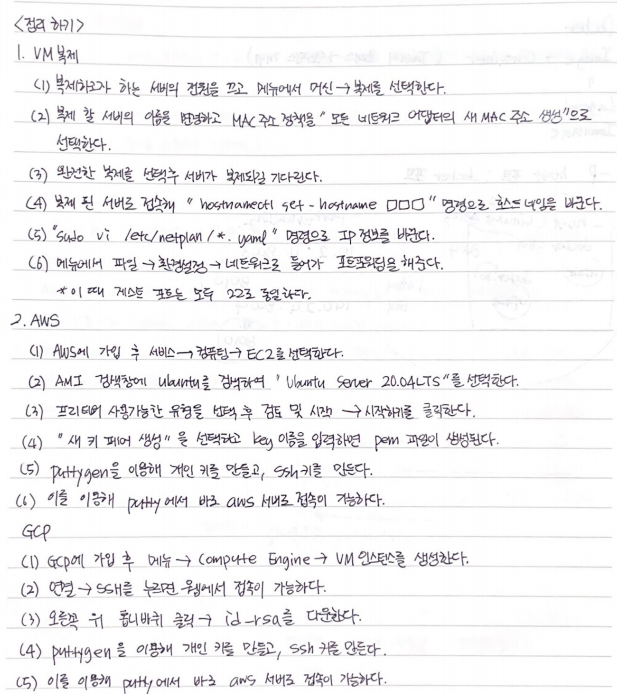 <정리 하기>
1. VM 복제
(1) 복제하고자 하는 서버의 전원을 끄고 메뉴에서 머신 → 복제를 선택한다.
(2) 복제 할 서버의 이름을 변경하고 MAC 주소 정책을 "모든 네트워크 어댑터의 새 MAC 주소 생성"으로
선택한다.
(3) 완전한 복제를 선택후 서버가 복제되길 기다린다.
(4) 복제 된 서버로 접속해 "hostnamectl set-hostname □□□" 명령으로 호스트네임을 바꾼다.
(5) "sudo vi /etc/netplan/*.yaml" 명령으로 IP 정보를 바꾼다.
(6) 메뉴에서 파일 → 환경설정 → 네트워크로 들어가 포트포워딩을 해준다.
* 이 때 게스트 포트는 모두 22로 동일하다.
2. AWS
(1) AWS에 가입 후 서비스 → 컴퓨팅 → EC2를 선택한다.
(2) AMI 검색창에 ubuntu를 검색하여 "Ubuntu Server 20.04 LTS"를 선택한다.
(3) 프리티어 사용가능한 유형을 선택 후 검토 및 시작 → 시작하기를 클릭한다.
(4) "새 키 페어 생성"을 선택하고 key 이름을 입력하면 pem 파일이 생성된다.
(5) puttygen을 이용해 개인 키를 만들고, ssh 키를 만든다.
(6) 이를 이용해 putty에서 바로 aws 서버로 접속이 가능하다.
GCP
(1) GCP에 가입 후 메뉴 → Compute Engine → VM 인스턴스를 생성한다.
(2) 연결 → SSH를 누르면 웹에서 접속이 가능하다.
(3) 오른쪽 위 톱니바퀴 클릭 → id_rsa를 다운한다.
(4) puttygen을 이용해 개인 키를 만들고, ssh 키를 만든다.
(5) 이를 이용해 putty에서 바로 aws 서버로 접속이 가능하다.